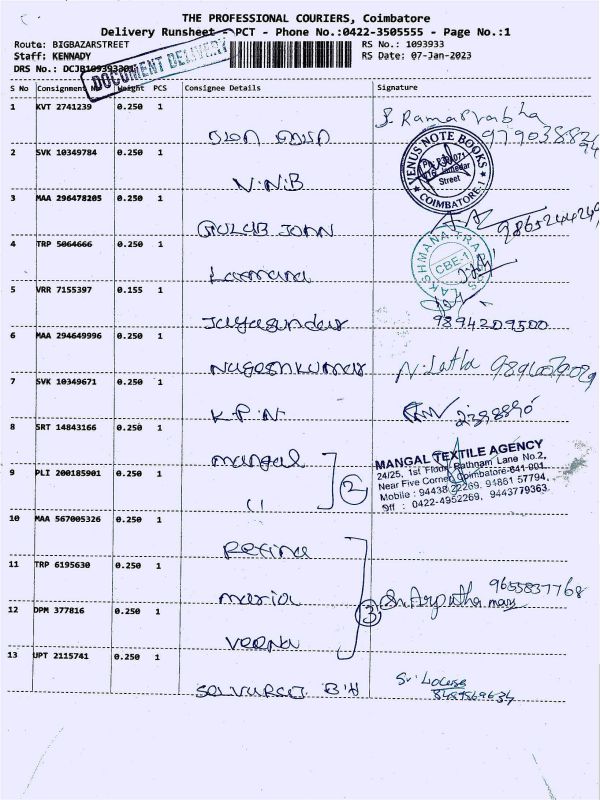 THE PROFESSIONAL COURIERS, Coimbatore
Delivery Runsheet - PCT - Phone No.:0422-3505555 - Page No.:1
Route: BIGBAZARSTREET
RS No.: 1093933
Staff: KENNADY
RS Date: 07-Jan-2023
DRS No.:
DOCUMENT DELIVERY
S No Consignment Weight PCS Consignee Details Signature
1 KVT 2741239 0.250 1
S. Ramaprabha
VENUS NOTE BOOKS
Street
COIMBATORE-1
2 SVK 10349784 0.250 1
V.N.B
3 MAA 296478205 0.250 1
GULAB JOHN
4 TRP 5064666 0.250 1
Laxmana
LAKSHMANA
CBE-1
5 VRR 7155397 0.155 1
Jayasundar
9894209500
6 MAA 294649996 0.250 1
Nageshkumar
N. Latha
7 SVK 10349671 0.250 1
K.P.N
8 SRT 14843166 0.250 1
mangal
MANGAL TEXTILE AGENCY
24/25, 1st Floor, Rathnam Lane No.2,
Near Five Corner, Coimbatore-641 001.
Mobile : 94438 22269, 94861 57794,
Off : 0422-4952269, 9443779363
9 PLI 200185901 0.250 1
11
2
10 MAA 567005326 0.250 1
Retina
11 TRP 6195630 0.250 1
maria
9655837768
12 DPM 377816 0.250 1
3
Veena
13 UPT 2115741 0.250 1
Selvaraj B.H
8489569634